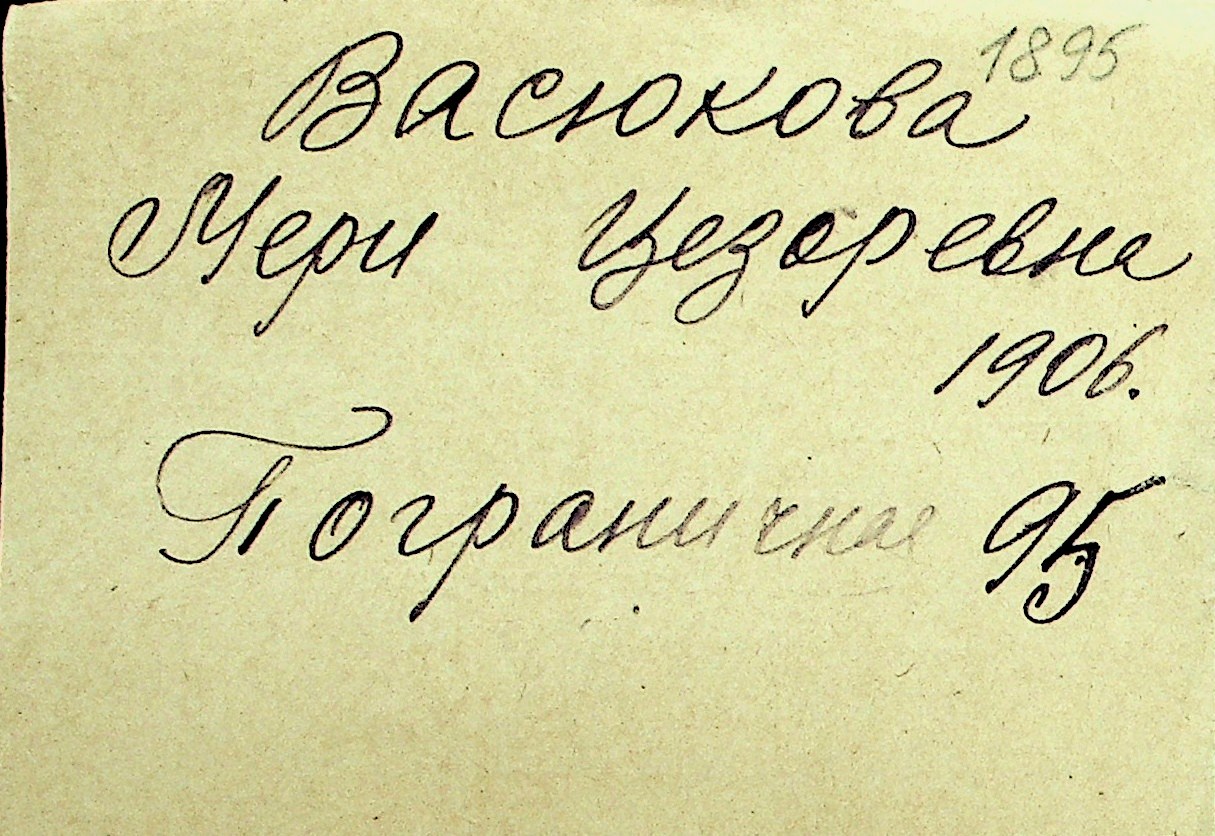 Васюкова 1895
Мери Цезаревна
1906.
Пограничная 95